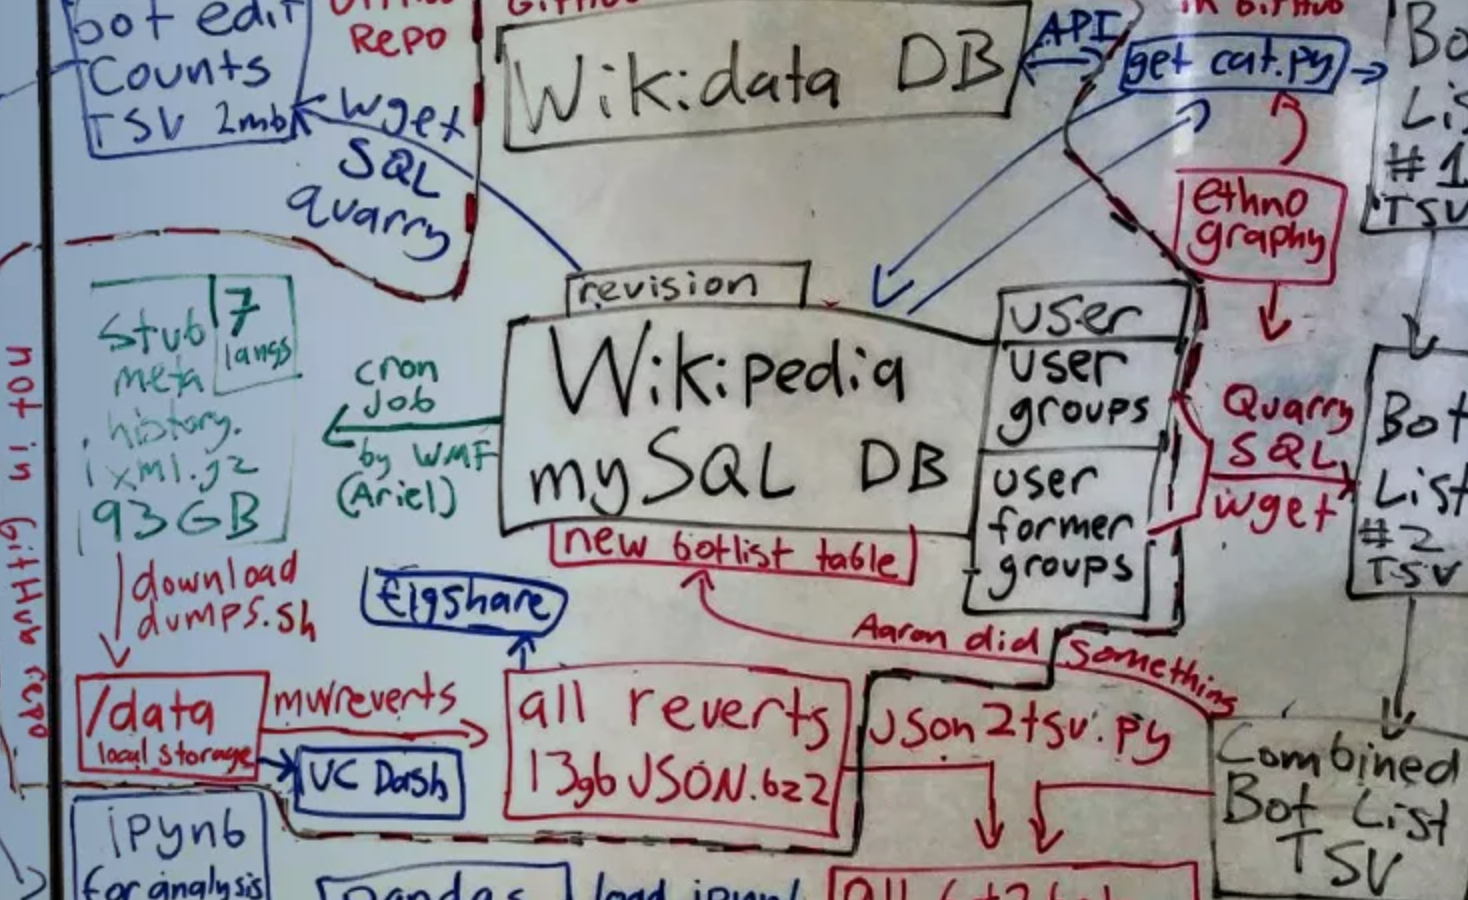 bot edit
Counts
TSV 2mb
Repo
wget
SQL
quarry
Wikidata DB
API
get cat.py
Bo
Lis
#1
TSV
ethno
graphy
revision
Wikipedia
mySQL DB
user
user
groups
user
former
groups
new botlist table
stub
meta
history.
xml.gz
93GB
7
langs
cron
job
by WMF
(Ariel)
Quarry
SQL
wget
Bot
List
#2
TSV
not in GitHub repo
download
dumps.sh
figshare
Aaron did something
/data
local storage
mwreverts
UC Dash
all reverts
13gb JSON.bz2
json2tsv.py
Combined
Bot List
TSV
ipynb
for analysis
pandas
load ipynb